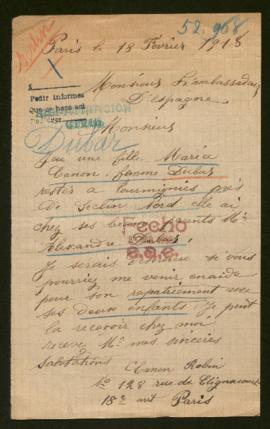 52.968
Paris le 18 Fevrier 1918
Monsieur l'ambassadeur
D'Espagne
Pedir informes
Monsieur
Dubar
J'ai une fille Maria
Canon femme Dubar
restée a
De Seclin Nord elle
chez ses beaux parents Mr
Alexandre Dubar
Fecho
Je serais si vous
pourriez me venir en aide
pour son rapatriement avec
ses deux enfants Je peut
la recevoir chez moi
recevez Mr nos sincères
salutations
Canon Robin
128 rue de Clignacourt
18e art Paris